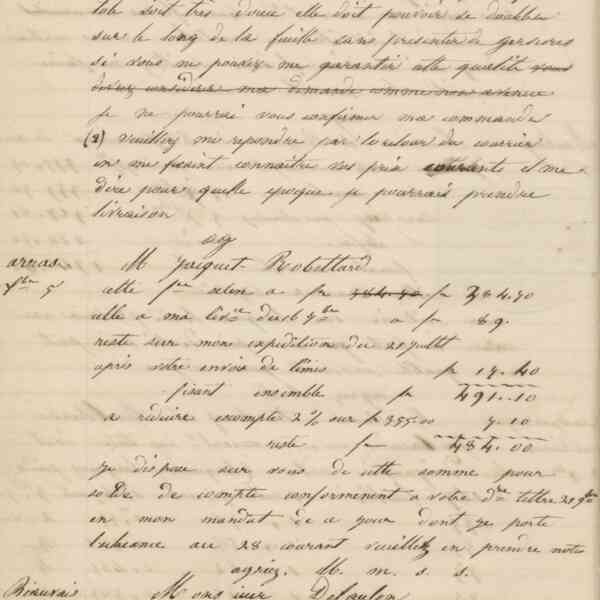 tole soit très douce elle doit pouvoir se doubler
sur le long de la feuille sans presenter de gersures
si vous ne pouvez me garantir cette qualité vous
devez considerer ma demande comme non avenue
je ne pourrai vous confirmer ma commande
(2) veuillez me repondre par le retour du courrier
en me fisant connaitre vos prix courants et me
dire pour quelle epoque je pourrais prendre
livraison
arras M Jaquet-Robillard
5 cette fre selon a fr 384.70
elle a ma livon du 6 7bre a fr 89.
reste sur mon expedition du 21 juillt
apres votre envoi de limes fr 17.40
fisant ensemble fr 491.10
a reduire escompte 2% sur fr 355.00 7.10
reste fr 484.00
je dispose sur vous de cette somme pour
solde de compte conformement a votre dre lettre 29 9bre
en mon mandat de ce jour dont je porte
l'echeance au 28 courant veuillez en prendre note
agréez. M. m. s. s.
Beauvais Monsieur